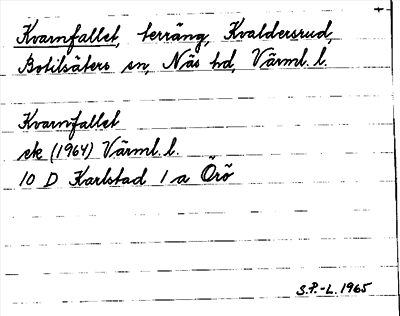 Kvarnfallet, terräng, Kvaldersrud,
Botilsäters sn, Näs hd, Värml. l.
Kvarnfallet
ek (1964) Värml. l.
10 D Karlstad 1 a Örö
S.P.-L. 1965